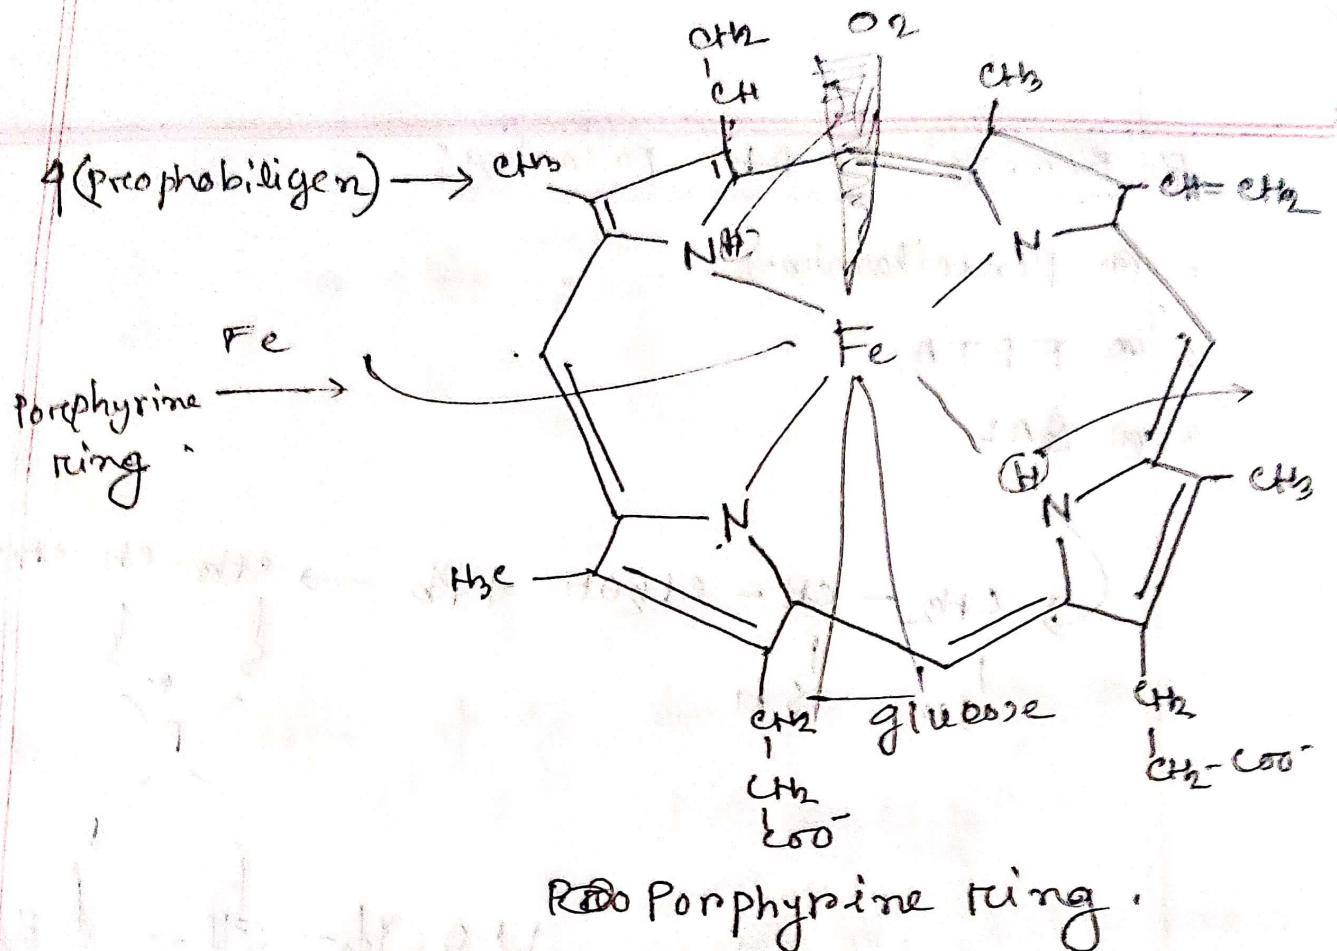 CH2
O2
CH
CH3
4(preophobiligen) →
CH3
CH=CH2
N
H
N
Fe
Fe
Porephyrine
ring
H
CH3
N
N
H3C
CH2
glucose
CH2
CH2
CH2-COO-
COO-
Porphyrine ring.